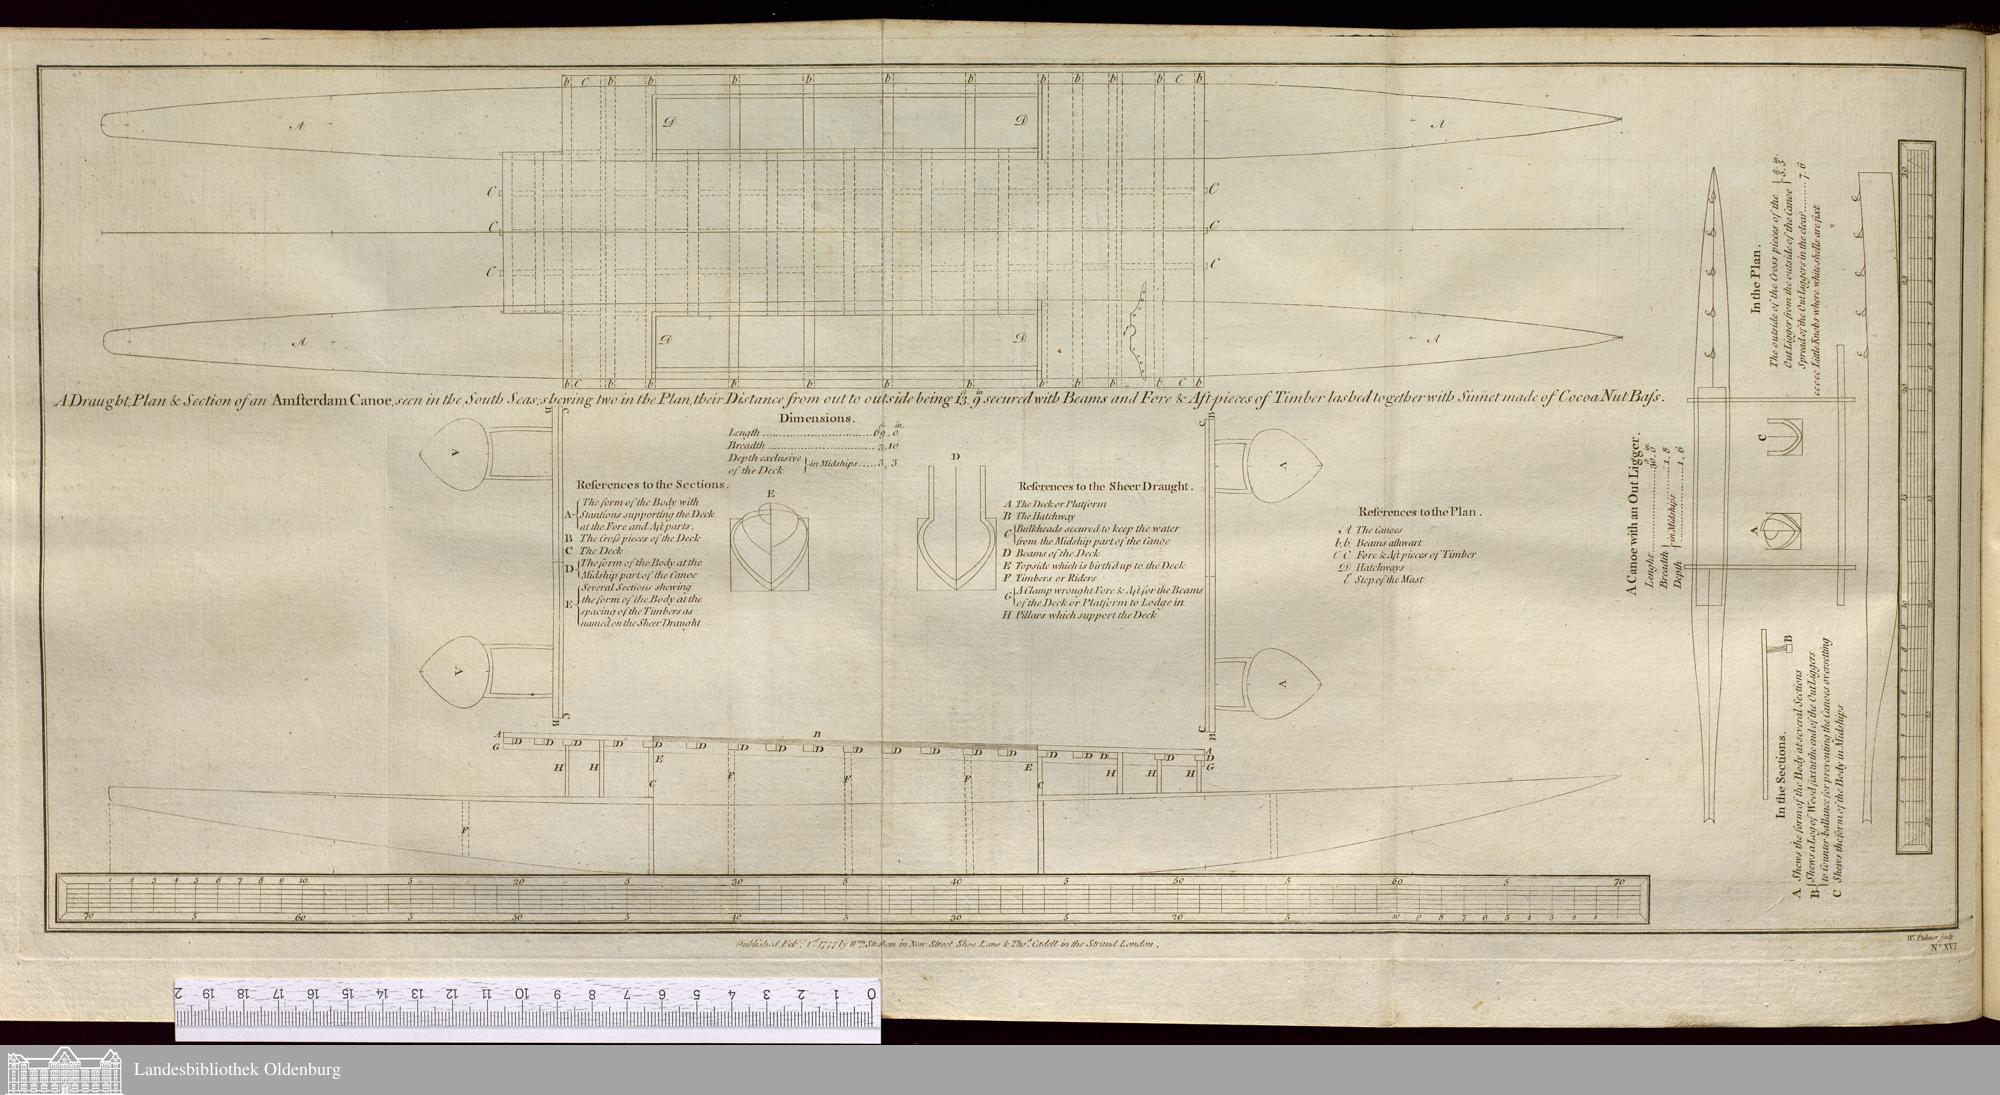 b C b b b b b b b b b b b C b
A D D A
C C
C C
C C
A D D A
b C b b b b b b b b b b C b
A Draught, Plan & Section of an Amſterdam Canoe, seen in the South Seas; shewing two in the Plan, their Distance from out to outside being 13 ft. 9 in. secured with Beams and Fore & Aft-pieces of Timber lashed together with Sinnet made of Cocoa Nut Baſs.
Dimensions.
ft. in.
Length 69 . 0
Breadth 3 . 10
Depth exclusive of the Deck } in Midships 3 . 3
References to the Sections.
A { The form of the Body with
Stantions supporting the Deck
at the Fore and Aft parts.
B The Croſs pieces of the Deck
C The Deck
D { The form of the Body at the
Midship part of the Canoe
E { Several Sections shewing
the form of the Body at the
spacing of the Timbers as
named on the Sheer Draught
E
D
References to the Sheer Draught.
A The Deck or Platform
B The Hatchway
C { Bulkheads secured to keep the water
from the Midship part of the Canoe
D Beams of the Deck
E Topside which is birth'd up to the Deck
F Timbers or Riders
G { A Clamp wrought Fore & Aft for the Beams
of the Deck or Platform to Lodge in
H Pillars which support the Deck
References to the Plan.
A The Canoes
b, b, Beams athwart
C C Fore & Aft pieces of Timber
D Hatchways
E Step of the Mast
A A
A A
B C
B C
C B
C B
A B A
G D D D D D D D D D D D D D D D D D D
E E G
H H C F F F C H H H
F
1 2 3 4 5 6 7 8 9 10 5 20 5 30 5 40 5 50 5 60 5 70
70 5 60 5 50 5 40 5 30 5 20 5 10 9 8 7 6 5 4 3 2 1
A Canoe with an Out Ligger.
ft. in.
Lenght 30 . 0
Breadth } in Midships 1 . 8
Depth 1 . 6
In the Plan.
The outside of the Croſs pieces of the
Out Ligger from the outside of the Canoe } 5 . 5
Spread of the Out Liggers in the clear 7 . 6
ccccc Little Knobs where white shells are fixt
C
A
B
In the Sections.
A Shews the form of the Body at several Sections
B { Shews a Log of Wood fixt at the end of the Out Liggers
to Counter ballance for preventing the Canoes oversetting
C Shews the form of the Body in Midships
Published Feb.ʸ 1.ˢᵗ 1777 by W.ᵐ Strahan in New Street Shoe Lane & Tho.ˢ Cadell in the Strand London.
W. Palmer sculp
N.º XVI
2 19 18 17 16 15 14 13 12 11 10 9 8 7 6 5 4 3 2 1 0
Landesbibliothek Oldenburg